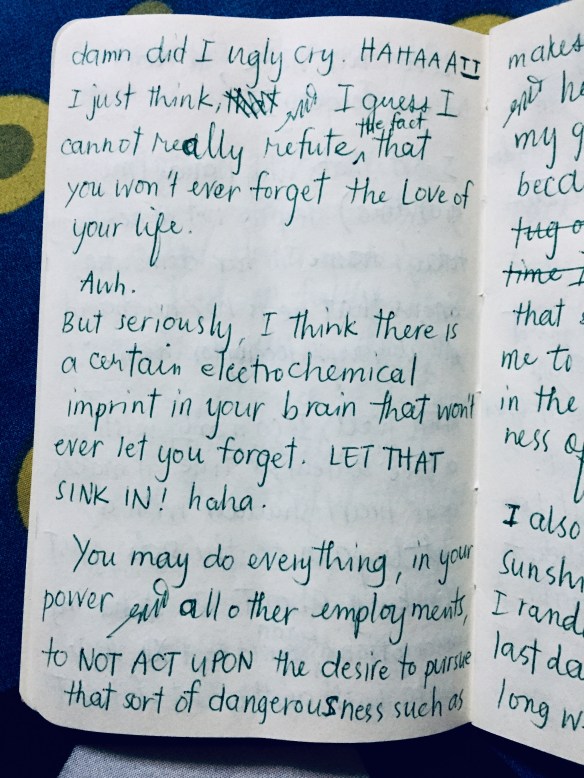 damn did I ugly cry. HAHAAAII
I just think, and I guess I
cannot really refute the fact that
you won't ever forget the Love of
your life.
Awh.
But seriously, I think there is
a certain electrochemical
imprint in your brain that won't
ever let you forget. LET THAT
SINK IN! haha.
You may do everything, in your
power and all other employments,
to NOT ACT UPON the desire to pursue
that sort of dangerousness such as
makes
and he
my g
beca
tug o
time I
that
me to
in the
ness of
I also
Sunsh
I rand
last da
long w